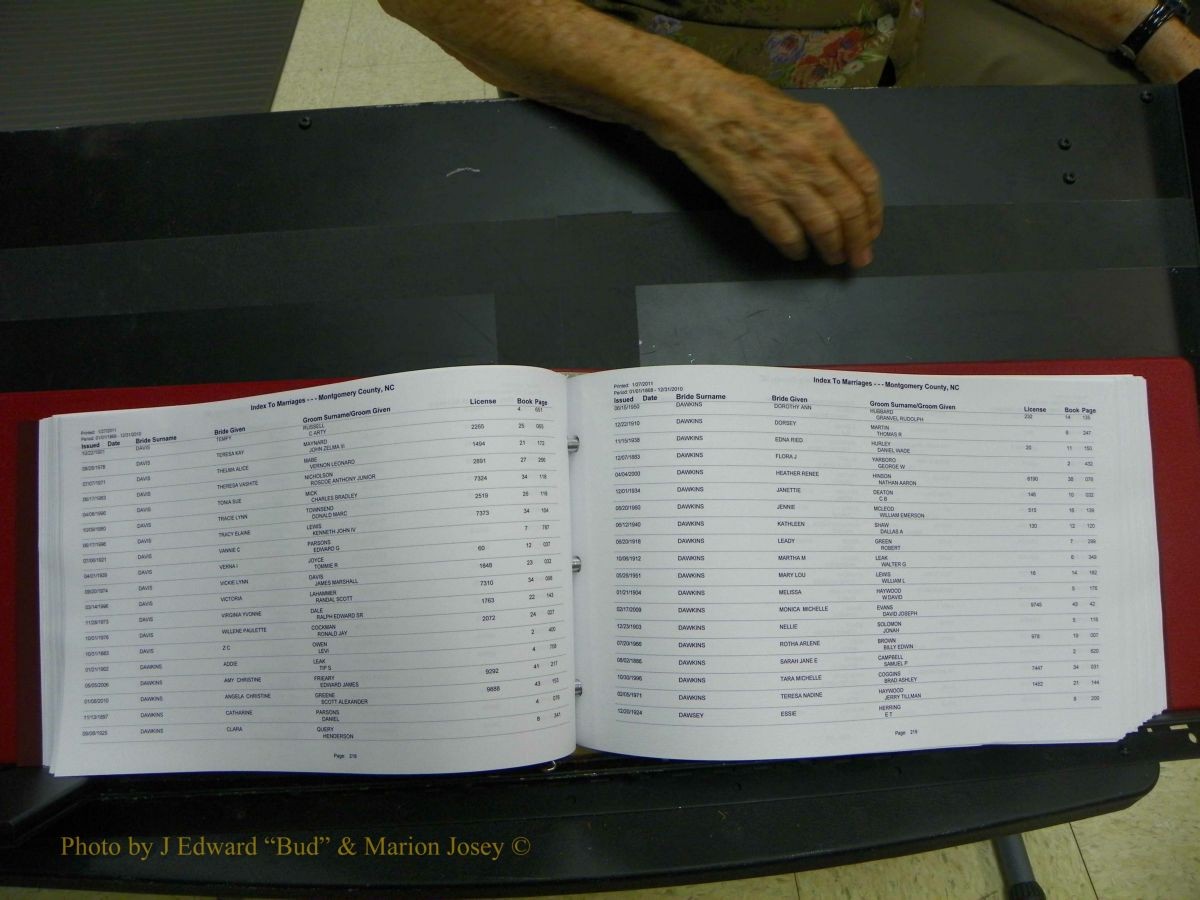 Index To Marriages - - - Montgomery County, NC
Printed: 1/27/2011
Period: 01/01/1868 - 12/31/2010
Issued Date Bride Surname Bride Given Groom Surname/Groom Given License Book Page
DAVIS TEMPY RUSSELL 4 651
C ARTY
DAVIS TERESA KAY MAYNARD 2265 25
JOHN ZELMA III
DAVIS THELMA ALICE MABE 1494 21 172
VERNON LEONARD
DAVIS THERESA VASHITE NICHOLSON 2891 27
ROSCOE ANTHONY JUNIOR
DAVIS TONIA SUE MICK 7324 34 118
CHARLES BRADLEY
DAVIS TRACIE LYNN TOWNSEND 2519 26 116
DONALD MARC
DAVIS TRACY ELAINE LEWIS 7373 34 104
KENNETH JOHN IV
DAVIS VANNIE C PARSONS 7 787
EDWARD G
DAVIS VERNA I JOYCE 60 12 037
TOMMIE R
DAVIS VICKIE LYNN DAVIS 1648 23 032
JAMES MARSHALL
DAVIS VICTORIA LAHAMMER 7310 34
RANDAL SCOTT
DAVIS VIRGINIA YVONNE DALE 1763 22 143
RALPH EDWARD SR
DAVIS WILLENE PAULETTE COCKMAN 2072 24 027
RONALD JAY
10/31/1883 DAVIS Z C OWEN 2 400
LEVI
01/21/1902 DAWKINS ADDIE LEAK 4
TIP S
05/05/2006 DAWKINS AMY CHRISTINE FRIEARY 9292 41 217
EDWARD JAMES
01/08/2010 DAWKINS ANGELA CHRISTINE GREENE 9888 43 153
SCOTT ALEXANDER
11/13/1897 DAWKINS CATHARINE PARSONS 4 076
DANIEL
09/09/1925 DAWKINS CLARA QUERY 8 341
HENDERSON
Page: 218
Index To Marriages - - - Montgomery County, NC
Printed: 1/27/2011
Period: 01/01/1868 - 12/31/2010
Issued Date Bride Surname Bride Given Groom Surname/Groom Given License Book Page
06/15/1950 DAWKINS DOROTHY ANN HUBBARD 232 14 135
GRANVEL RUDOLPH
12/22/1910 DAWKINS DORSEY MARTIN 6 247
THOMAS R
11/15/1938 DAWKINS EDNA RIED HURLEY 20 11 150
DANIEL WADE
12/07/1883 DAWKINS FLORA J YARBORO 2 432
GEORGE W
04/04/2000 DAWKINS HEATHER RENEE HINSON 8190 38 078
NATHAN AARON
12/01/1934 DAWKINS JANETTIE DEATON 146 10 032
C B
DAWKINS JENNIE MCLEOD 515 16 139
WILLIAM EMERSON
06/12/1940 DAWKINS KATHLEEN SHAW 130 12 120
DALLAS A
DAWKINS LEADY GREEN 7 299
ROBERT
10/06/1912 DAWKINS MARTHA M LEAK 6 349
WALTER G
05/26/1951 DAWKINS MARY LOU LEWIS 16 14 182
WILLIAM L
01/21/1904 DAWKINS MELISSA HAYWOOD 5 176
W DAVID
02/17/2009 DAWKINS MONICA MICHELLE EVANS 9745 43 42
DAVID JOSEPH
12/23/1903 DAWKINS NELLIE SOLOMON 5 116
JONAH
07/20/1966 DAWKINS ROTHA ARLENE BROWN 978 19 007
BILLY EDWIN
08/02/1886 DAWKINS SARAH JANE E CAMPBELL 2 620
SAMUEL P
10/30/1996 DAWKINS TARA MICHELLE COGGINS 7447 34 031
BRAD ASHLEY
02/05/1971 DAWKINS TERESA NADINE HAYWOOD 1402 21 144
JERRY TILLMAN
12/20/1924 DAWSEY ESSIE HERRING 8 200
E T
Page: 219
Photo by J Edward “Bud” & Marion Josey ©